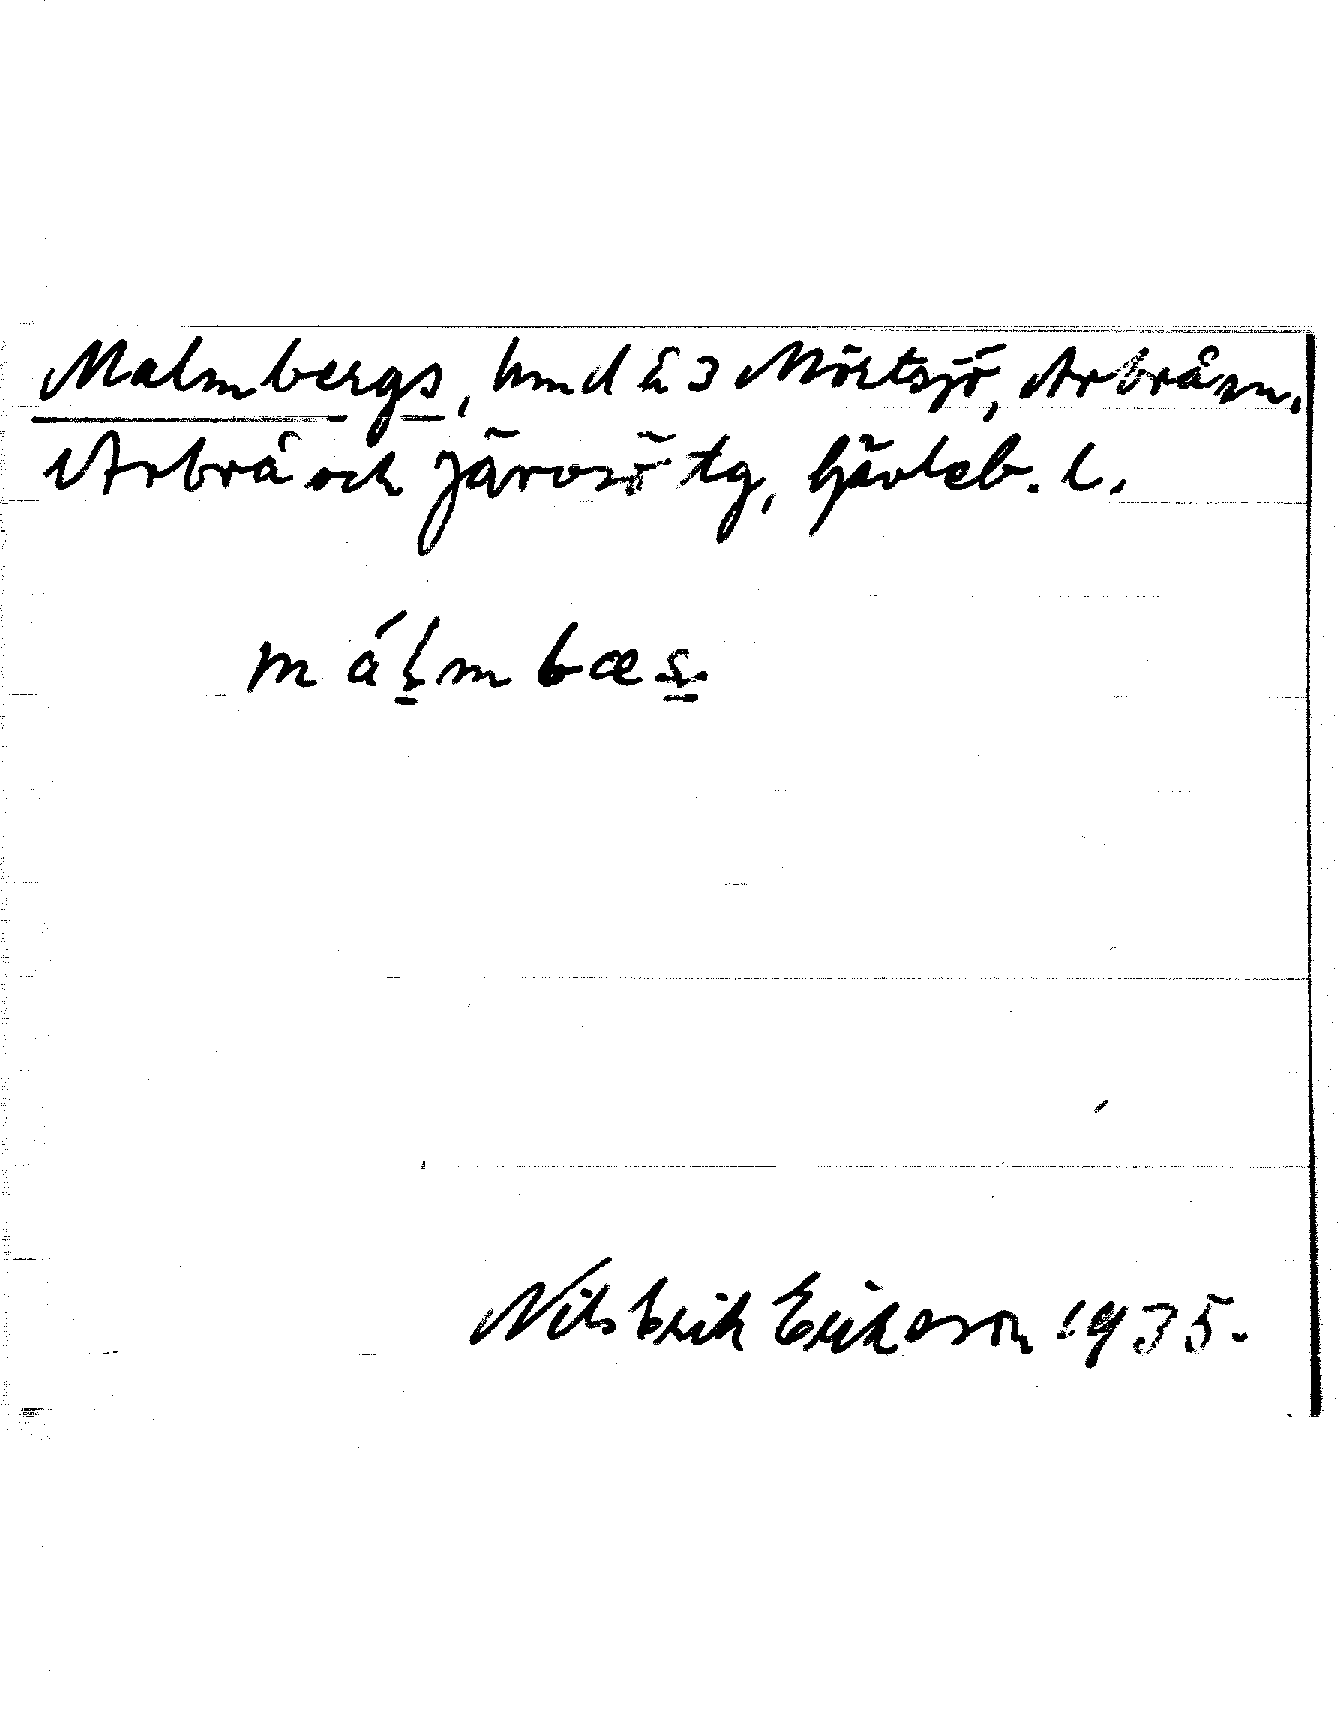 Malmbergs, hmd å 3 Mörtsjö, Arbrå sn.
Arbrå och Järvsö tg, Gävleb. l.
málmbæs
Nils Erik Erikson 1935.